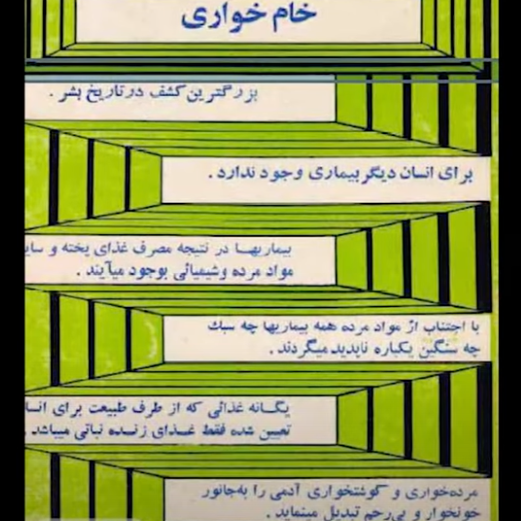 خام خواری
بزرگترین کشف در تاریخ بشر .
برای انسان دیگر بیماری وجود ندارد .
بیماریهـا در نتیجه مصرف غذای پخته و سایـ
مواد مرده وشیمیائی بوجود میآیند .
با اجتناب از مواد مرده همه بیماریها چه سبك
چه سنگین یکباره ناپدید میگردند .
یگـانه غذائی که از طرف طبیعت برای انسا
تعیین شده فقط غـذای زنـده نباتی میباشد .
مرده‌خواری و گوشتخواری آدمی را به‌جانور
خونخوار و بی‌رحم تبدیل مینماید .